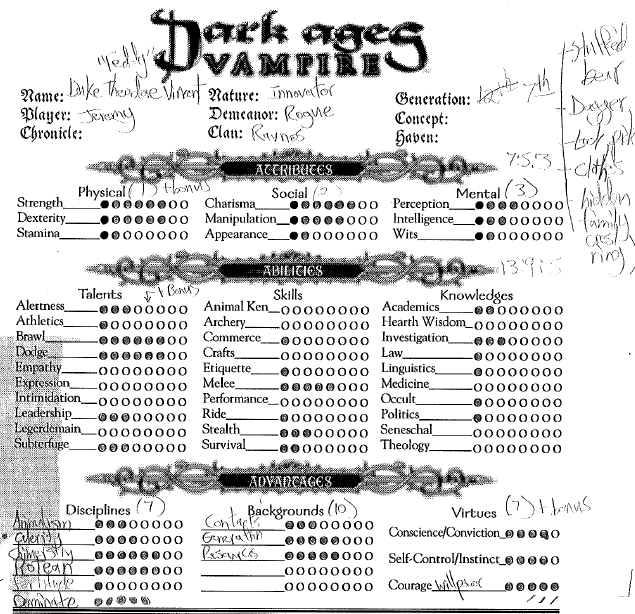 Dark ages
VAMPIRE
"Teddy"
Name: Duke Theodore Vincent Nature: Innovator Generation: 12th 7th
Player: Jeremy Demeanor: Rogue Concept:
Chronicle: Clan: Ravnos Haven:
stuffed
bear
Dagger
Lock pick
clothes
hidden
family
crest
ring
ATTRIBUTES
7:5:3
Physical (1) + bonus Social (2) Mental (3)
Strength Charisma Perception
Dexterity Manipulation Intelligence
Stamina Appearance Wits
ABILITIES
13:9:5
Talents Skills Knowledges
+ Bonus
Alertness Animal Ken Academics
Athletics Archery Hearth Wisdom
Brawl Commerce Investigation
Dodge Crafts Law
Empathy Etiquette Linguistics
Expression Melee Medicine
Intimidation Performance Occult
Leadership Ride Politics
Legerdemain Stealth Seneschal
Subterfuge Survival Theology
ADVANTAGES
Disciplines (7) Backgrounds (10) Virtues (7) + bonus
Animalism Contacts Conscience/Conviction
Celerity Generation
Chimerstry Resources Self-Control/Instinct
Protean
Fortitude Courage willpower
Dominate